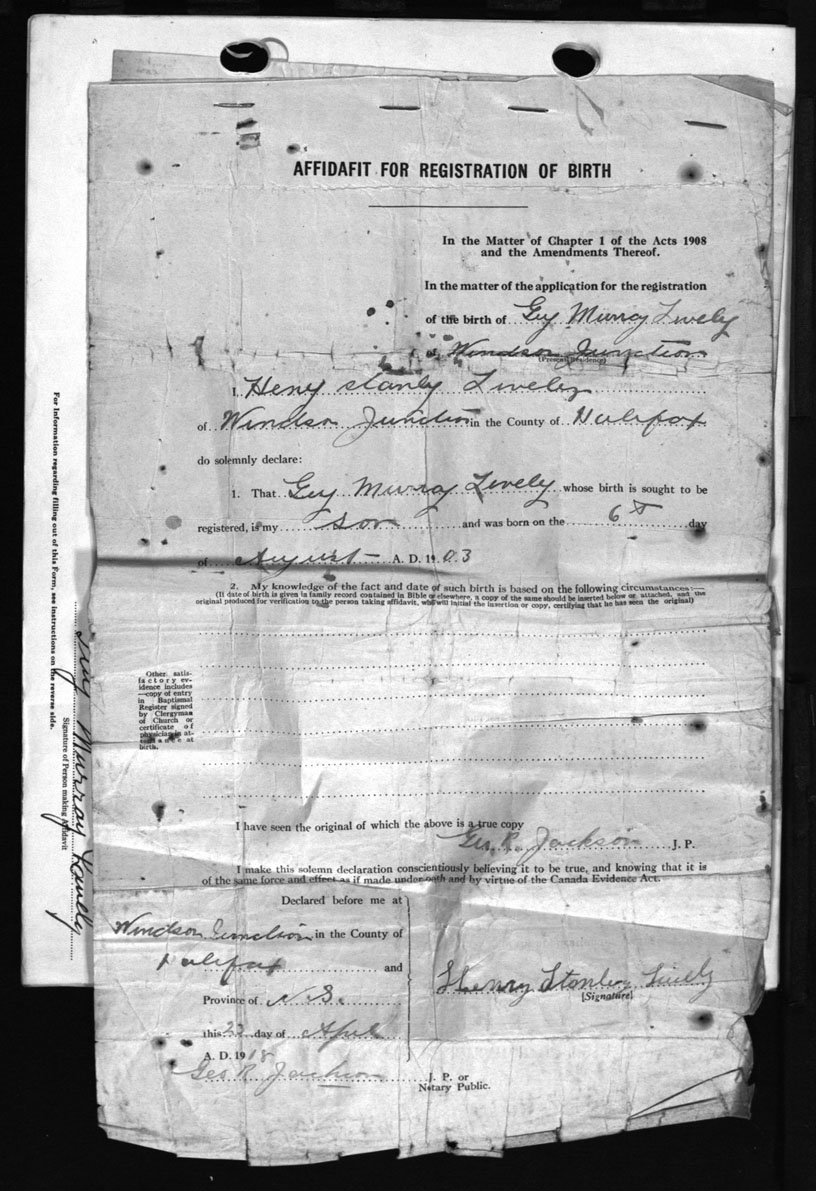 AFFIDAFIT FOR REGISTRATION OF BIRTH
In the Matter of Chapter 1 of the Acts 1908
and the Amendments Thereof.
In the matter of the application for the registration
of the birth of Guy Murray Lively
of Windsor Junction
(Present Residence)
I, Heny stanly Lively
of Windsor Junction in the County of Halifax
do solemnly declare:
1. That Guy Murray Lively whose birth is sought to be
registered, is my Son and was born on the 6th day
of August A. D. 1903
2. My knowledge of the fact and date of such birth is based on the following circumstances:—
(If date of birth is given in family record contained in Bible or elsewhere, a copy of the same should be inserted below or attached, and the
original produced for verification to the person taking affidavit, who will initial the insertion or copy, certifying that he has seen the original)
Other satis-
factory ev-
idence includes
—copy of entry
in Baptismal
Register signed
by Clergyman
of Church or
certificate of
physician in at-
tendance at
birth.
I have seen the original of which the above is a true copy
Geo. R. Jackson J. P.
I make this solemn declaration conscientiously believing it to be true, and knowing that it is
of the same force and effect as if made under oath and by virtue of the Canada Evidence Act.
Declared before me at
Windsor Junction in the County of
Halifax and
Province of N. S.
this 22 day of April
A. D. 1918
Geo R. Jackson J. P. or
Notary Public.
Henry Stanley Lively
[Signature]
For Information regarding filling out of this Form, see instructions on the reverse side.
Signature of Person making Affidavit
Guy Murray